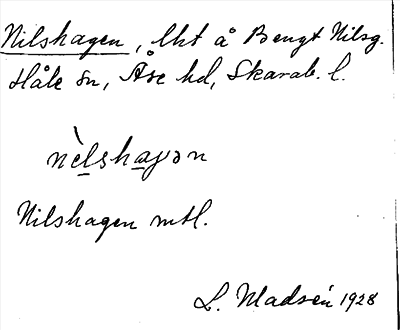 Nilshagen, lht å Bengt Nilsg.
Håle sn, Åse hd, Skarab. l.
nèlshaɡən
Nilshagen mtl.
L. Madsén 1928